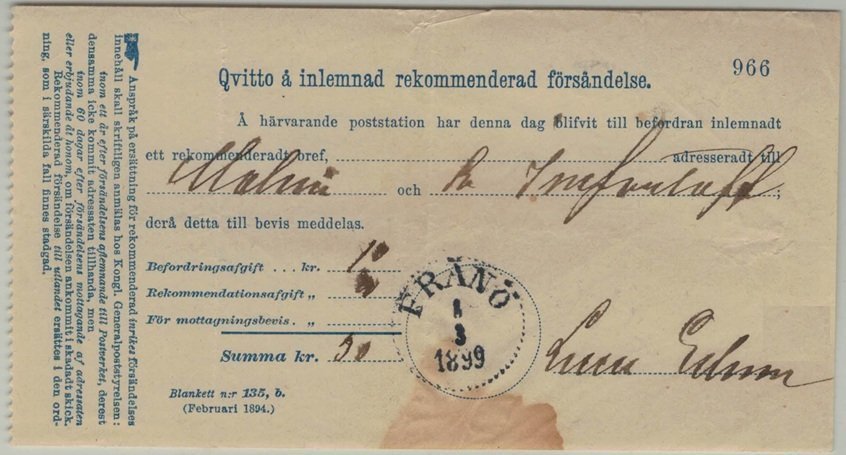 966
Qvitto å inlemnad rekommenderad försändelse.
Å härvarande poststation har denna dag blifvit till befordran inlemnadt
ett rekommenderadt bref, adresseradt till
Malmö och ;
derå detta till bevis meddelas.
Befordringsafgift ... kr. 10
Rekommendationsafgift „
För mottagningsbevis. „
Summa kr. 30
Blankett n:r 135, b.
(Februari 1894.)
FRÄNÖ
1
3
1899
Anspråk på ersättning för rekommenderad inrikes försändelses
innehåll skall skriftligen anmälas hos Kongl. Generalpoststyrelsen:
inom ett år efter försändelsens aflemnande till Postverket, derest
densamma icke kommit adressaten tillhanda, men
inom 60 dagar efter försändelsens mottagande af adressaten
eller erbjudande åt honom, om försändelsen ankommit i skadadt skick.
Rekommenderad försändelse till utlandet ersättes i den ord-
ning, som i särskilda fall finnes stadgad.